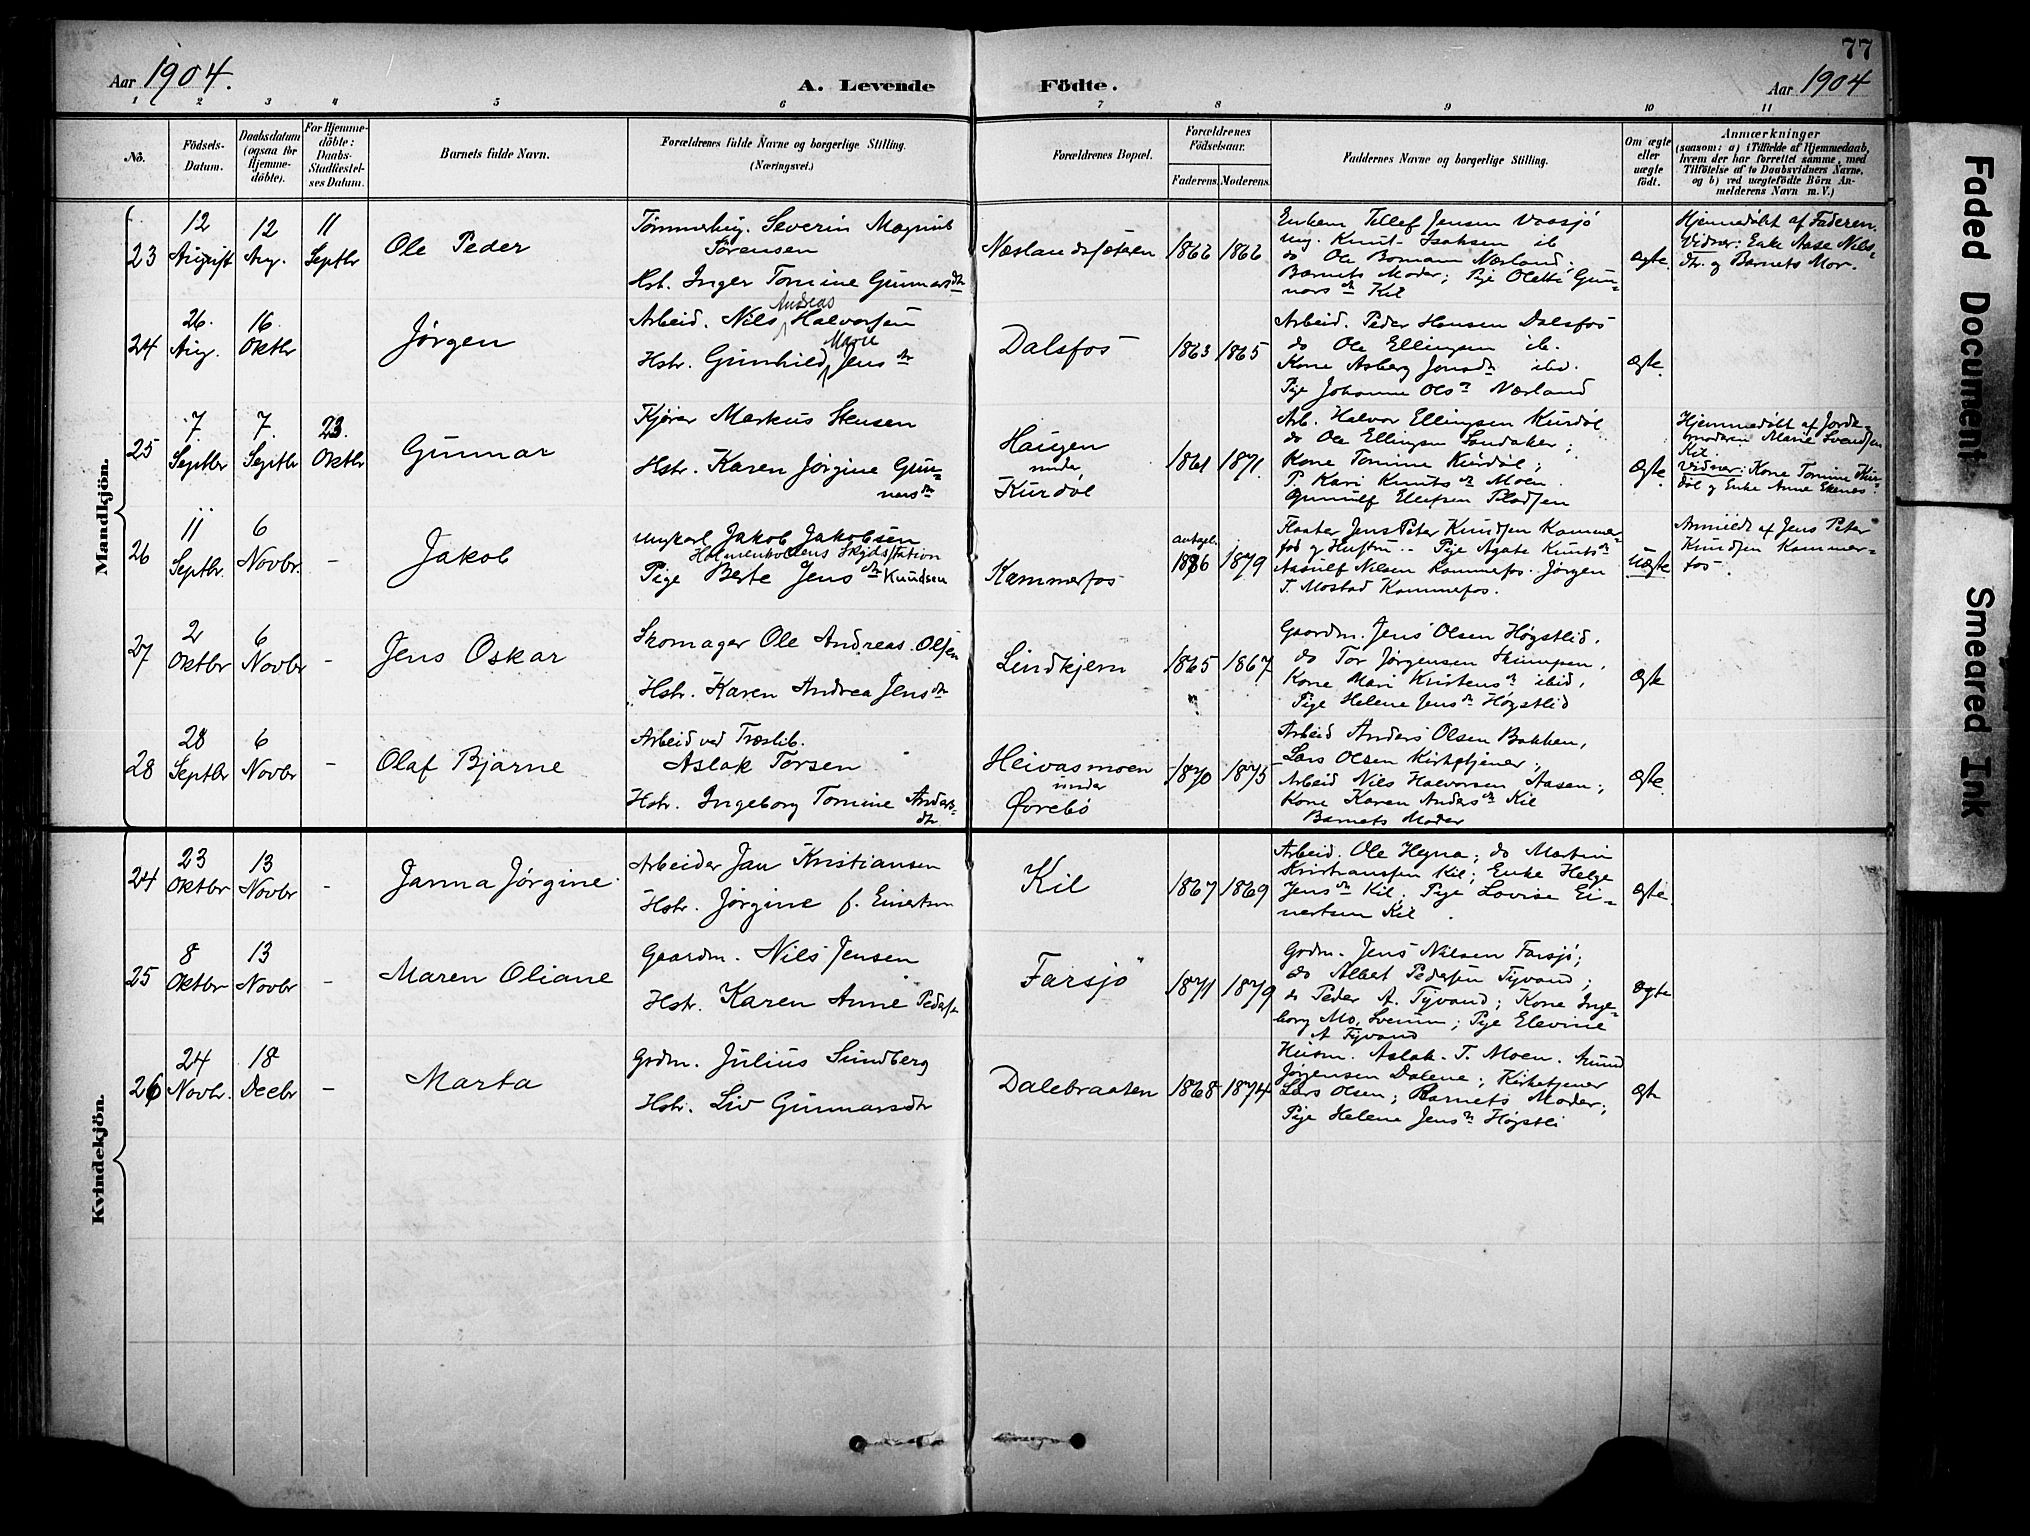 77
Aar 1904.
A. Levende Födte.
Aar 1904
1 2 3 4 5 6 7 8 9 10 11
No.
Födsels-
Datum.
Daabsdatum
(ogsaa for
Hjemme-
döbte).
For Hjemme-
döbte:
Daabs-
Stadfæstel-
ses Datum.
Barnets fulde Navn.
Forældrenes fulde Navne og borgerlige Stilling.
(Næringsvei.)
Forældrenes Bopæl.
Forældrenes
Födselsaar.
Faderens. Moderens.
Faddernes Navne og borgerlige Stilling.
Om ægte
eller
uægte
födt.
Anmærkninger
(saasom: a) i Tilfælde af Hjemmedaab,
hvem der har forrettet samme, med
Tilföielse af to Daabsvidners Navne,
og b) ved uægtefödte Börn An-
melderens Navn m. V.)
Mandkjön.
23
12
August
12
Aug.
11
Septbr
Ole Peder
Severin Magnus
Sørensen
Hst. Inger Tomine Gunnarsdtr
1862 1862
Enkem. Tellef Jensen Vaasjø
ung. Knut Isaksen ib
do Ole Bomann Nærland.
Barnets Moder; Pige Olette Gun-
nars dtr Kil
ægte
Hjemmedøbt af Faderen.
Vidner: Enke Aase Nils-
dtr. og Barnets Mor.
24
26.
Aug.
16.
Oktbr
Jørgen
Andreas
Arbeid. Nils Halvorsen
Marie
Hstr. Gunhild Jens dtr
Dalsfos
1863 1865
Arbeid. Peder Hansen Dalsfos
do Ole Ellingsen ib.
Kone Asberg Jonsdtr ibid.
Pige Johanne Ols dtr Nærland
ægte.
25
7.
Septbr
7.
Septbr
23.
Oktbr
Gunnar
Kjører Markus Stensen
Hstr. Karen Jørgine Gun-
nars dtr
Haugen
under
Kurdøl
1861 1871.
Arb. Halvor Ellingsen Kurdøl
do Ole Ellingsen Sandaker;
Kone Tomine Kurdøl;
P. Kari Knuts dtr Moen.
Gunulf Ellefsen
ægte.
Hjemmedøbt af Jorde-
moderen Marie Svendsen
Kil.
Vidner: Kone Tomine Kur-
døl og Enke Anne Ekenes.
26
11
Septbr.
6
Novbr.
-
Jakob
ungkarl Jakob Jakobsen
Skydsstation
Pige Berte Jens dtr Knudsen
Kammerfos
antagl.
1876 1879
Jens Peter Knudsen Kammer-
fos og Hustru. Pige Agate Knuts dtr
Aasulf Nilsen Kammerfos. Jørgen
T. Mostad Kammefos.
uægte
Anmeldt af Jens Peter
Knudsen Kammer-
fos.
27
2
Oktbr
6
Novbr
-
Jens Oskar
Skomager Ole Andreas Olsen
Hstr. Karen Andrea Jens dtr
Lindkjern
1865 1867
Gaardm. Jens Olsen Høgstlid.
do Tor Jørgensen
Kone Mari Kristens dtr ibid.
Pige Helene Jens dtr Høgstlid
ægte
28
28
Septbr
6
Novbr
-
Olaf Bjarne
Arbeid ved Træslib.
Aslak Torsen
Hstr. Ingeborg Tomine Anders-
dtr
Heivasmoen
under
Ørebø
1870 1875
Arbeid Anders Olsen Bakken,
Lars Olsen Kirketjener;
Arbeid Nils Halvorsen Aasen;
Kone Karen Anders dtr Kil
Barnets Moder
ægte.
Kvindekjön.
24
23
Oktbr
13
Novbr
-
Janna Jørgine
Arbeider Jan Kristiansen
Hstr. Jørgine f. Einertsen
Kil
1867 1869
Arbeid. Ole Hegna; do Martin
Kristiansen Kil; Enke Helge
Jens dtr Kil; Pige Lovise Ei-
nertsen Kil.
ægte.
25
8
Oktbr
13
Novbr
-
Maren Oliane
Gaardm. Nils Jensen
Hstr. Karen Anne Peders
Farsjø
1871 1879
Grdm. Jens Nilsen Farsjø;
do Albert Pedersen Tyvand;
do Peder A. Tyvand; Kone Inge-
borg Mo, Pige Elevine
A Tyvand
ægte
26
24
Novbr.
18
Decbr
-
Marta
Grdm. Julius Sundberg
Hstr. Liv Gunnarsdtr
Dalebraaten
1868 1874
Husm. Aslak T. Moen. Amund
Jørgensen Dalene; Kirketjener
Lars Olsen; Barnets Moder;
Pige Helene Jens dtr Høgstli
ægte
Faded Document
Smeared Ink